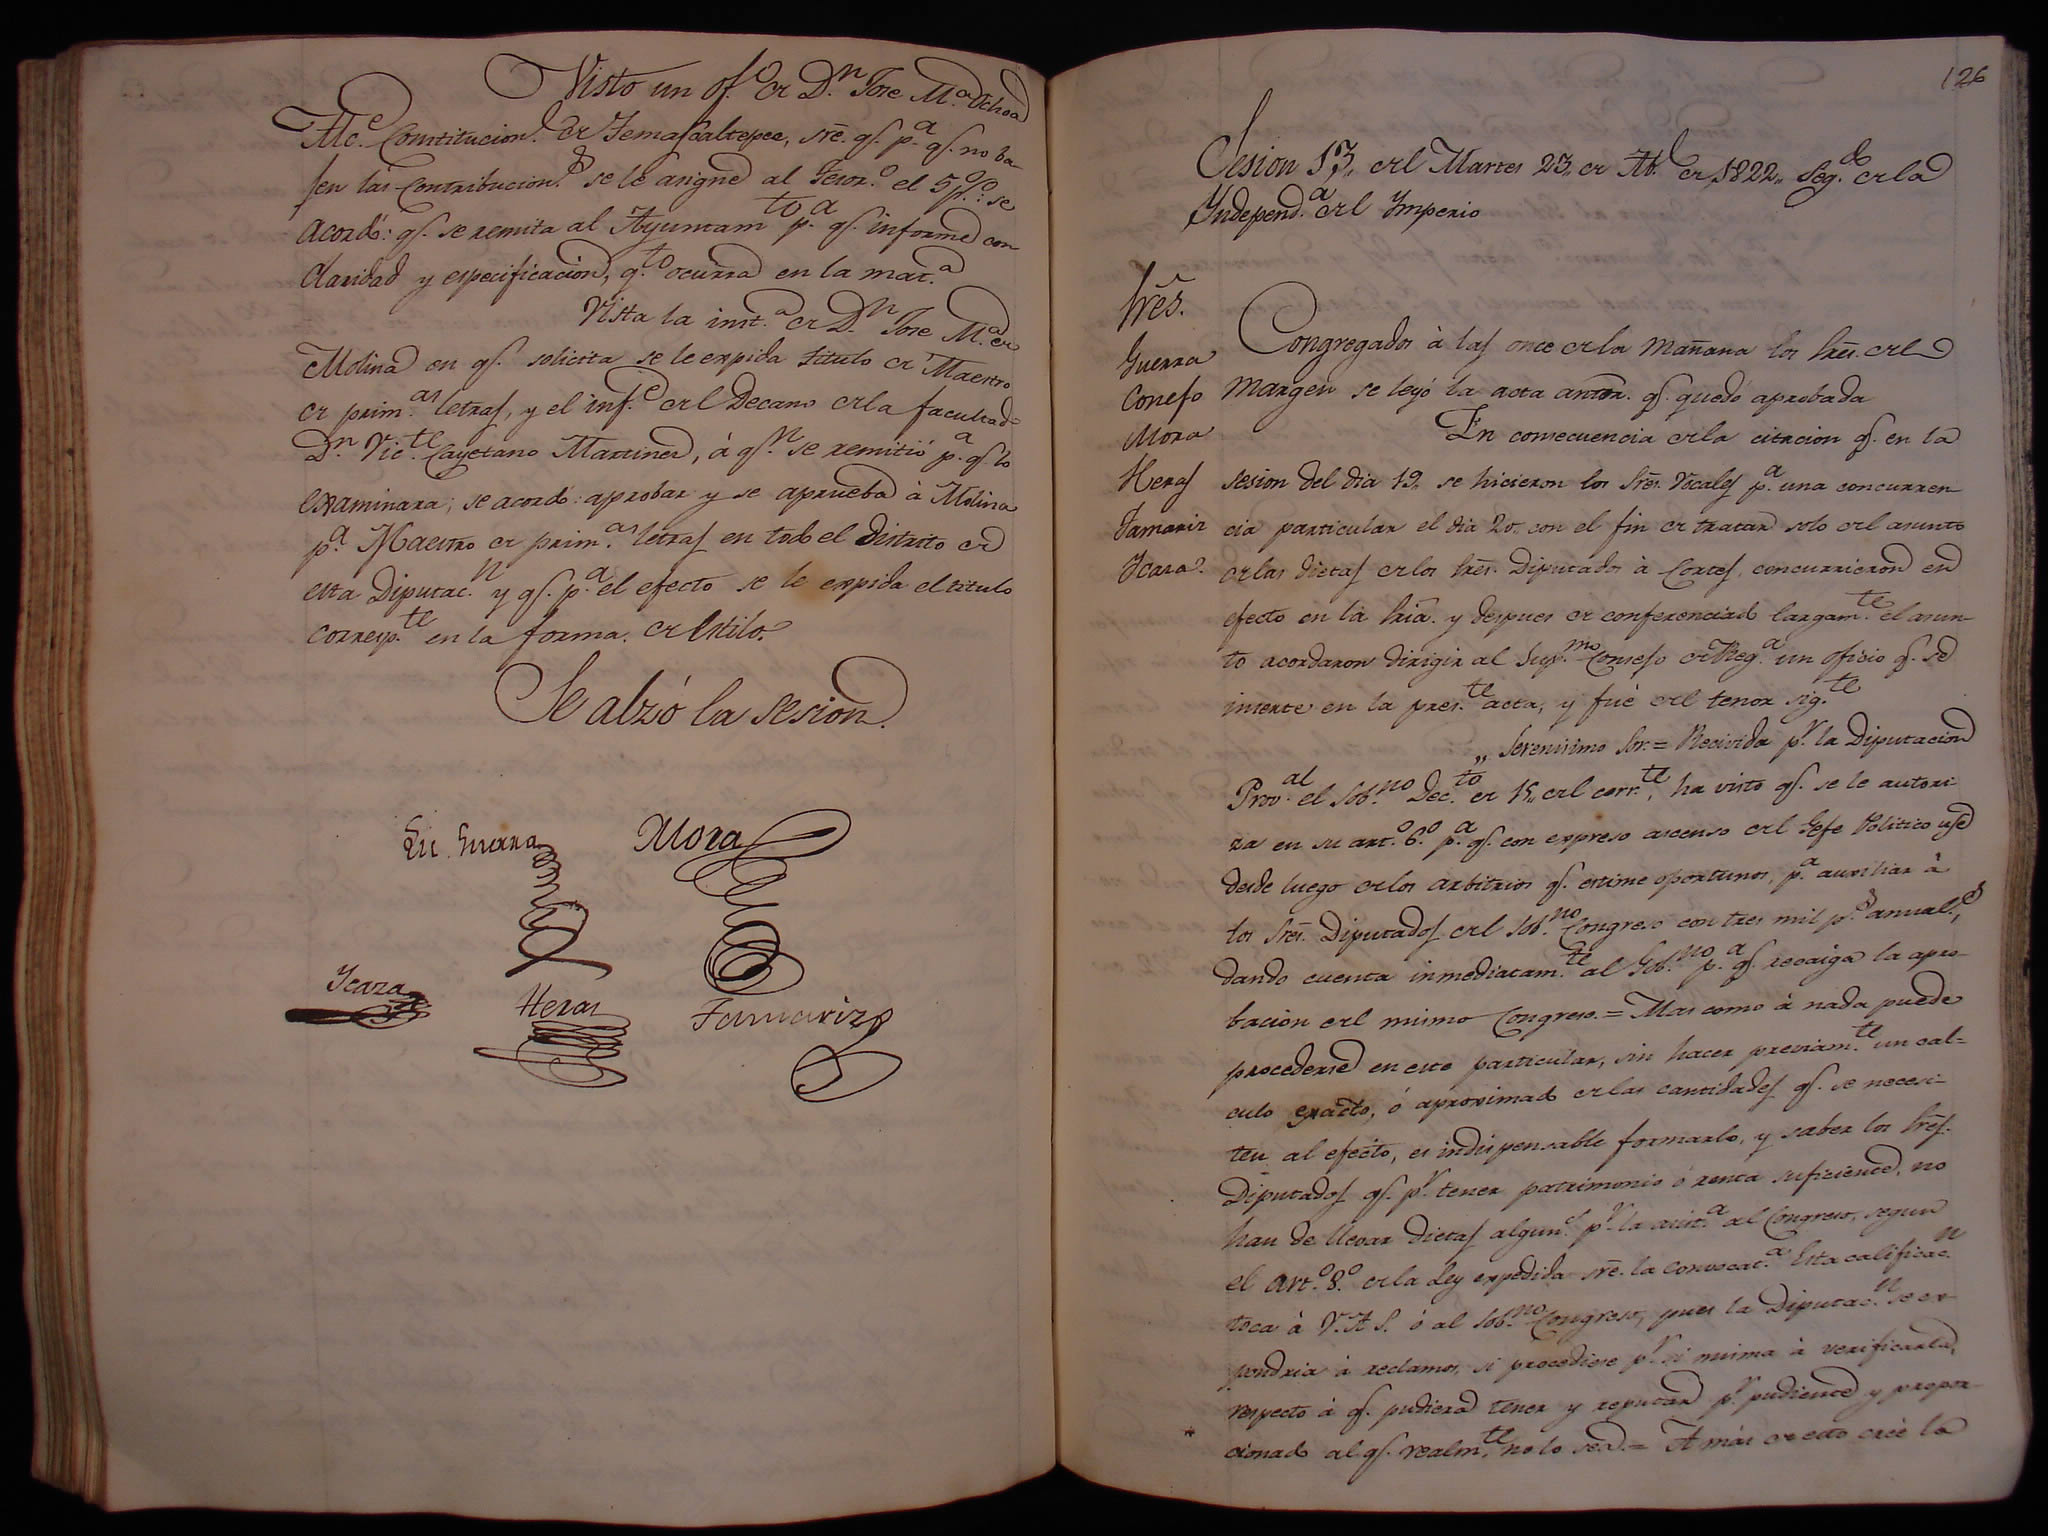 Visto un of.o de D.n Jose M.a Ochoa
Alc.e Constitucion.l de Temascaltepec, sre. q.e p.a q.e no ba-
sen las contribucion.s se le asigne al Tesor.o el 5 p.%: se
acordó: q.e se remita al Ayuntam.to p.a q.e informe con
claridad y especificacion, q.to ocurra en la mat.a
Vista la inst.a de D.n Jose M.a de
Molina en q.e solicita se le expida titulo de Maestro
de prim.as letras, y el inf.e del Decano de la facultad
D.n Vic.te Cayetano Martinez, á q.n se remitió p.a q.e lo
examinara; se acordó: aprobar y se aprueba á Molina
p.a Maestro de prim.as letras en todo el Distrito de
esta Diputac.n y q.e p.a el efecto se le expida el titulo
corresp.te en la forma de estilo.
Se alzó la sesion.
Lic. Guerra
Mora
Icaza
Heras
Tamariz
126
Sesion 13,, del Martes 23,, de Ab.l de 1822,, Seg.do de la
Independ.a del Imperio
Sres.
Guerra
Conejo
Mora
Heras
Tamariz
Icaza.
Congregados à las once de la mañana los Sres. del
margen se leyó la acta anter. q.e quedó aprobada
En consecuencia de la citacion q.e en la
sesion del dia 19,, se hicieron los Sres. Vocales p.a una concurren
cia particular el dia 20,, con el fin de tratar solo del asunto
de las dietas de los Sres. Diputados à Cortes, concurrieron en
efecto en la Sria. y despues de conferenciado largam.te el asun-
to acordaron dirigir al Sup.mo Consejo de Reg.a un oficio q.e se
inserte en la pres.te acta, y fué del tenor sig.te
,, Serenisimo Sor. = Recivida p.r la Diputacion
Prov.al el Sob.no Dec.to de 15,, del corr.te, ha visto q.e se le autori-
za en su art.o 6.o p.a q.e con expreso ascenso del Gefe Politico use
desde luego de los arbitrios q.e estime oportunos, p.a auxiliar à
los Sres. Diputados del Sob.no Congreso con tres mil p.s anual.s,
dando cuenta inmediatam.te al Gob.no p.a q.e recaiga la apro-
bacion del mismo Congreso. = Mas como à nada puede
procederse en este particular, sin hacer previam.te un cal=
culo exacto, ó aproximado de las cantidades q.e se necesi-
ten al efecto, es indispensable formarlo, y saber los Sres.
Diputados q.e p.r tener patrimonio ó renta suficiente, no
han de llevar dietas algun.s p.r la asist.a al Congreso, segun
el art.o 8.o de la Ley expedida sre. la convocat.a Esta calificac.n
toca à V.A.S. ó al Sob.no Congreso, pues la Diputac.n se ex-
pondria à reclamos, si procediese p.r si misma à verificarla,
respecto à q.e pudiera tener y reputar p.r pudiente y propor-
cionado al q.e realm.te no lo sea. = A más de esto creé la